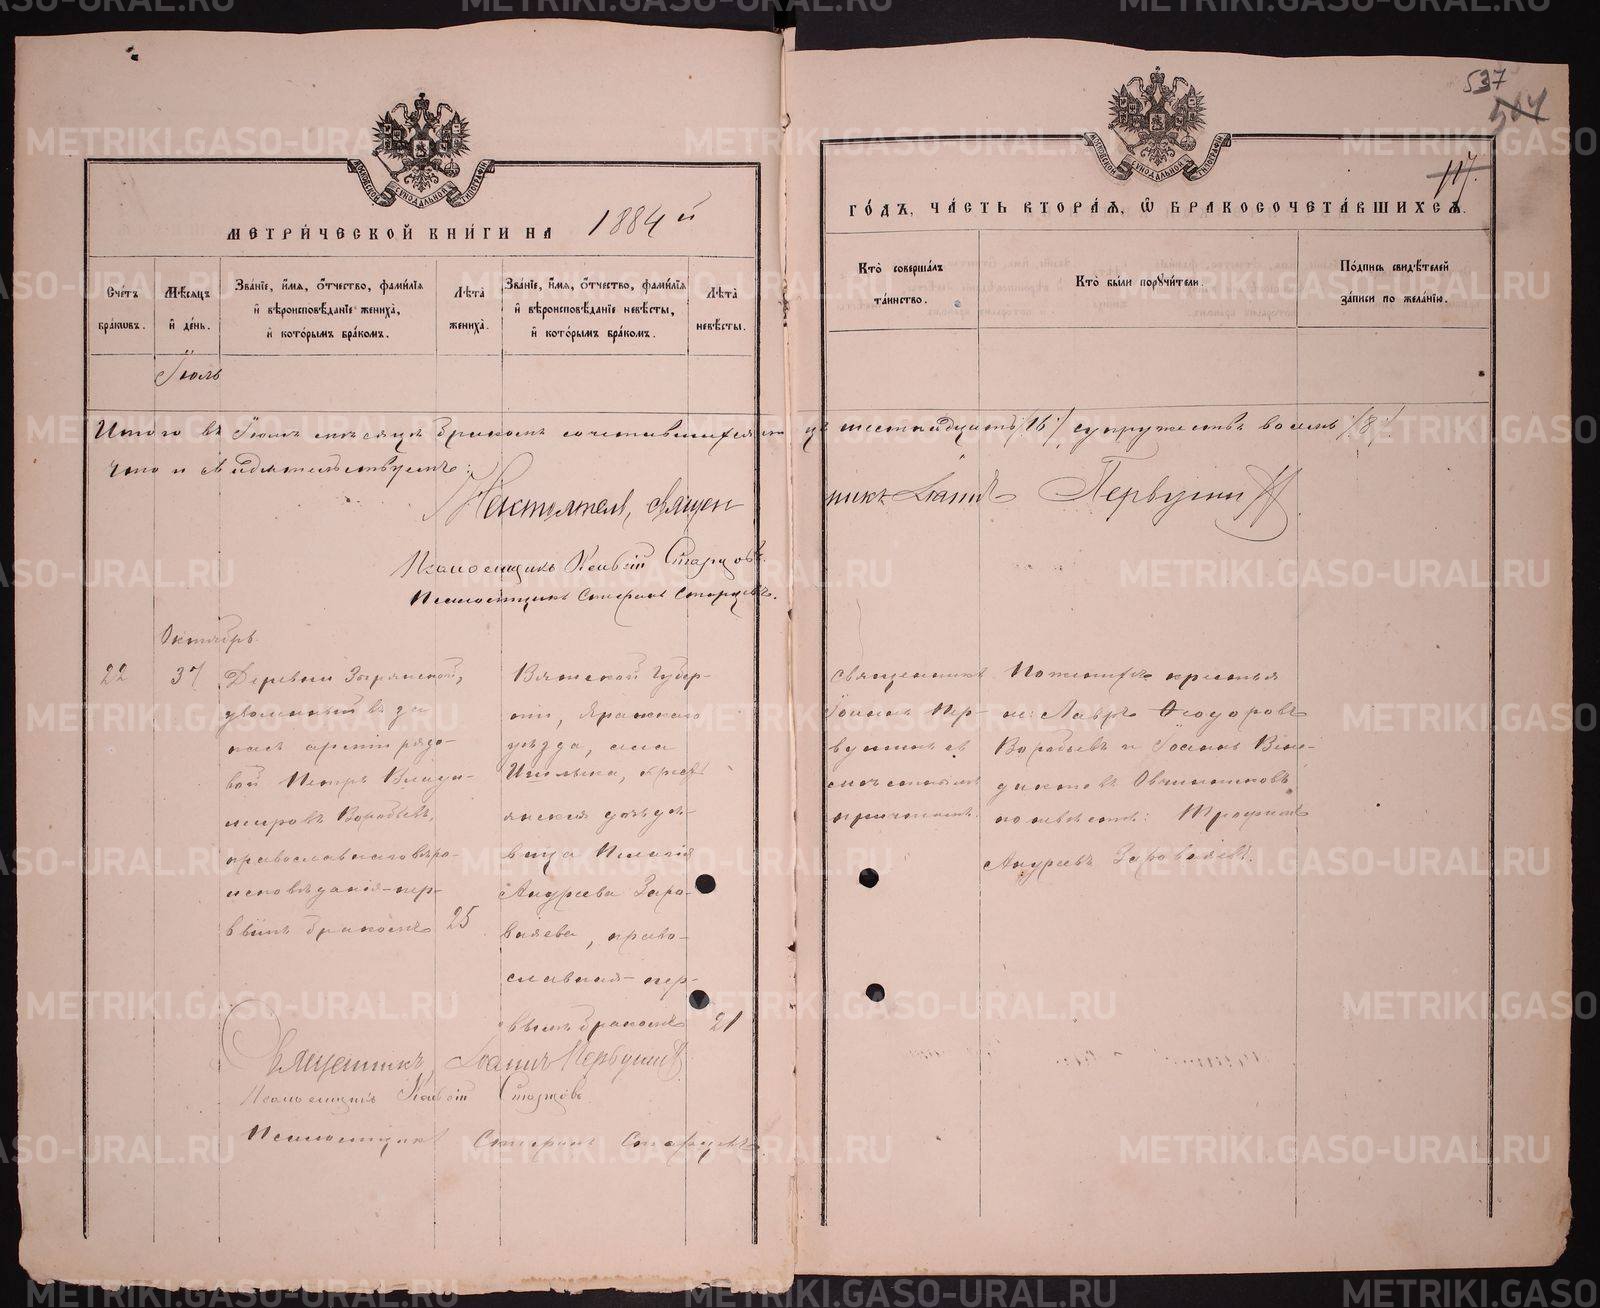 537
504
117.
МОСКОВСКОЙ СѴНОДАЛЬНОЙ ТИПОГРАФІИ
МОСКОВСКОЙ СѴНОДАЛЬНОЙ ТИПОГРАФІИ
МЕТРИ́ЧЕСКОЙ КНИ́ГИ НА 1884й
ГО́ДЪ, ЧА́СТЬ ВТОРА́Я, Ѡ БРАКОСОЧЕТА́ВШИХСЯ.
Сче́тъ бра́ковъ.
Мѣ́сяцъ и де́нь.
Зва́нїе, и́мя, о́тчество, фами́лїя и вѣроисповѣ́данїе жениха̀, и кото́рымъ бра́комъ.
Лѣ́та жениха̀.
Зва́нїе, и́мя, о́тчество, фами́лїя и вѣроисповѣ́данїе невѣ́сты, и кото́рымъ бра́комъ.
Лѣ́та невѣ́сты.
Кто̀ соверша́лъ та́инство.
Кто̀ бы́ли порꙋчи́тели.
По́дпись свидѣ́телей за́писи по жела́нїю.
Іюль
Итого въ Іюлѣ мѣсяцѣ бракомъ сочетавшихся лицъ шестнадцать /16/ супружествъ восемь /8/
что и свидѣтельствуемъ:
Настоятель, священникъ Іоаннъ Первушинъ
Псаломщикъ Старцовъ.
Псаломщикъ Стефанъ Старцевъ.
Октябрь.
22
Деревни Зырянской,
уволенный въ за
пасъ арміи рядо-
вой Петръ Влади-
мировъ Воробьевъ,
православнаго вѣро-
исповѣданія - пер-
вымъ бракомъ
25
Вятской Губер-
ніи, Яранскаго
уѣзда, села
крестьянская дочь дѣ-
вица Пелагія
Андреева
право-
славная - пер-
вымъ бракомъ
21
Священникъ
Іоаннъ Пер-
вушинъ съ
мѣстнымъ
причтомъ.
По женихѣ крестья
не: Лавръ Ѳеодоровъ
Воробьевъ и Іоаннъ Вене-
диктовъ Овчинниковъ
по невѣстѣ: Трофимъ
Андреевъ
Священникъ, Іоаннъ Первушинъ
Псаломщикъ Старцовъ
Псаломщикъ Стефанъ Старцевъ.
METRIKI.GASO-URAL.RU